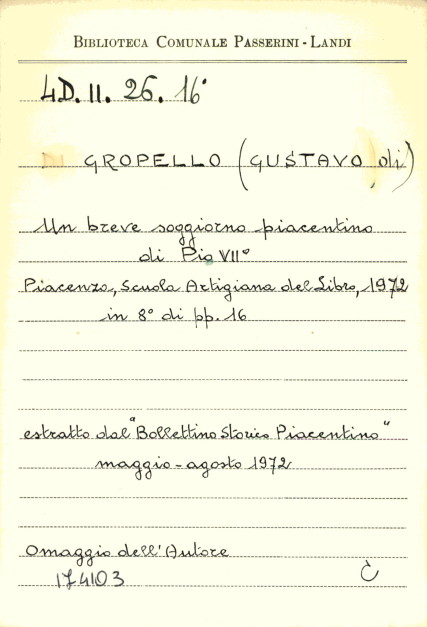 BIBLIOTECA COMUNALE PASSERINI - LANDI
4D. II. 26. 16°
GROPELLO (GUSTAVO, di)
Un breve soggiorno piacentino
di Pio VII°
Piacenza, Scuola Artigiana del Libro, 1972
in 8° di pp. 16
estratto dal "Bollettino Storico Piacentino"
maggio - agosto 1972
Omaggio dell'Autore
174103